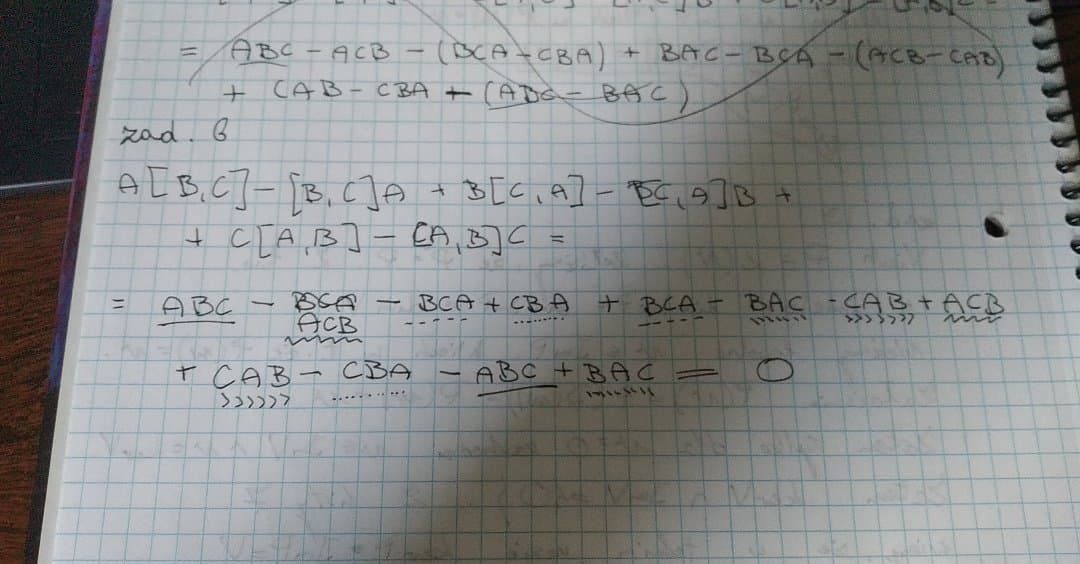 = ABC - ACB - (BCA - CBA) + BAC - BCA - (ACB - CAB)
+ CAB - CBA - (ABC - BAC)
zad. 6
A[B,C] - [B,C]A + B[C,A] - [C,A]B +
+ C[A,B] - [A,B]C =
= ABC - BCA - BCA + CBA + BCA - BAC - CAB + ACB
ACB
+ CAB - CBA - ABC + BAC = 0